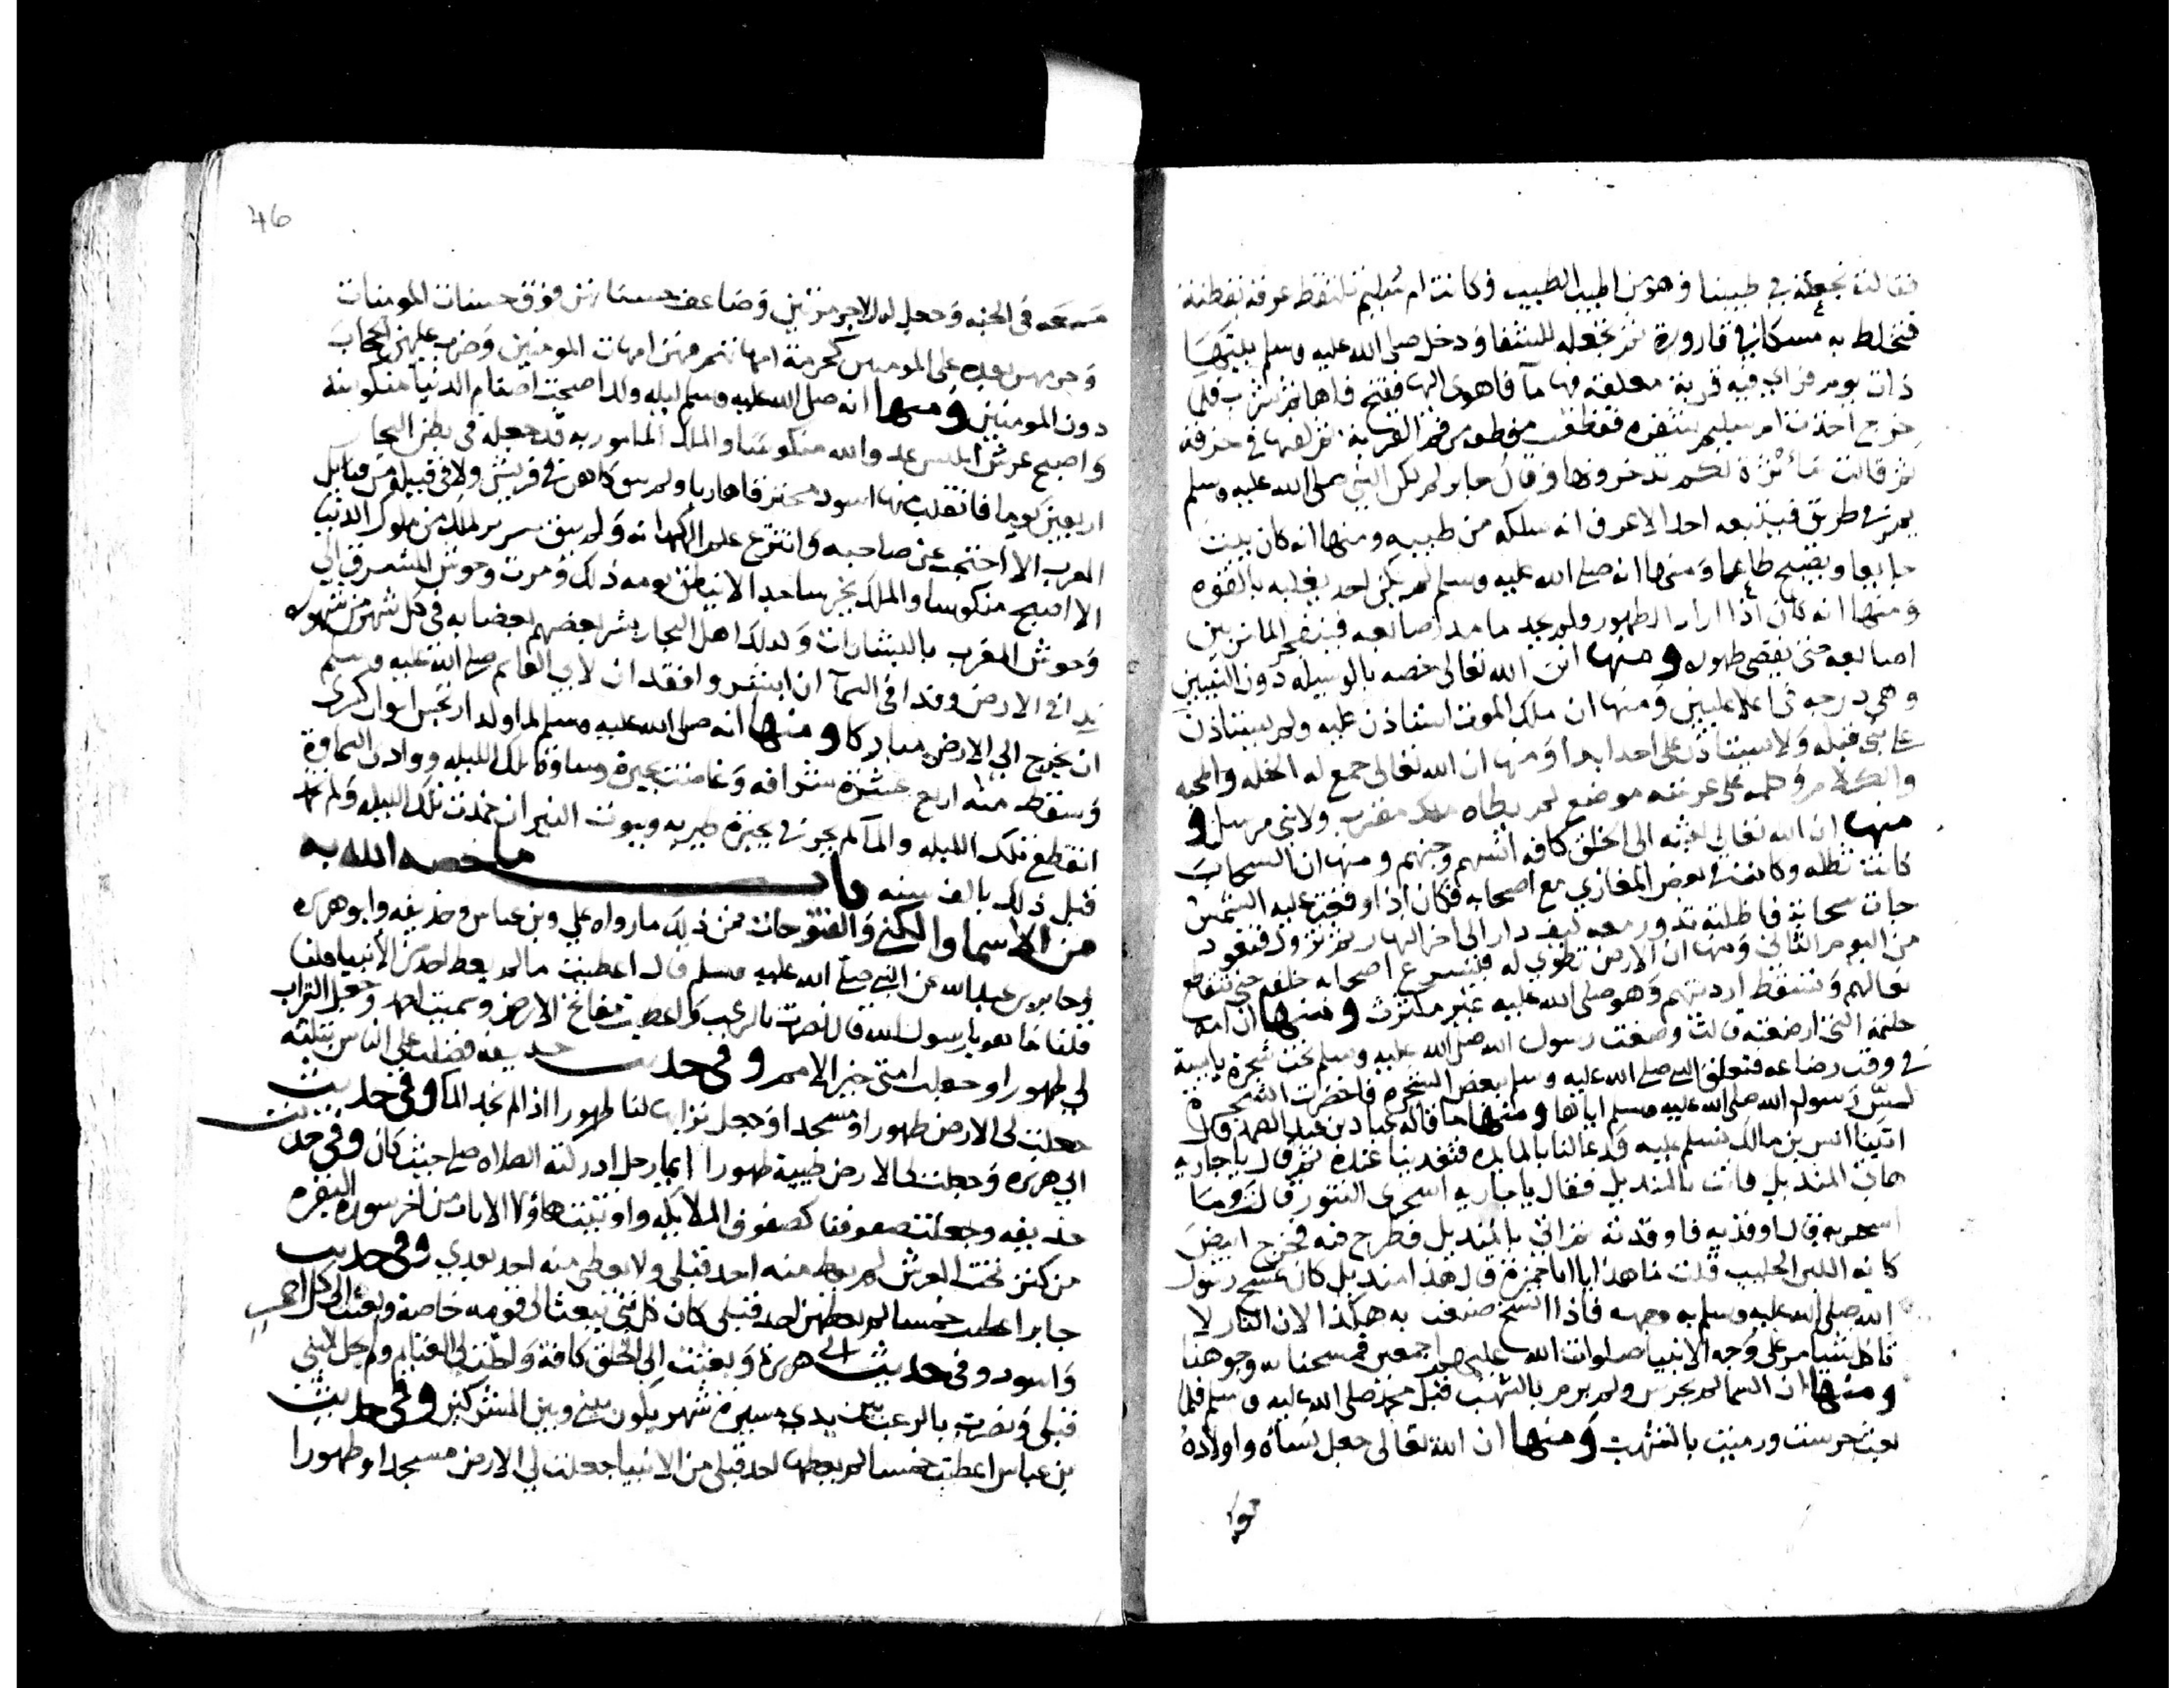 فقالت نجعله في طيبنا وهو من اطيب الطيب وكانت ام سليم تلتقط عرقه بقطنة
فتخلط به مسكا في قارورة ثم تجعله للشفا ودخل صلى الله عليه وسلم بيتها
ذات يوم فراي فيه قربة معلقة فيها ما فاهوى اليها ففتح فاها ثم شرب فلما
خرج اخذت ام سليم شفره فقطعت موضعه من فم القربة ثم لفتها في خرقة
ثم قالت مأثرة لكم تدخرونها وقال جابر لم يكن النبي صلى الله عليه وسلم
يمر في طريق فيتبعه احد الا عرف انه سلكه من طيبه ومنها انه كان يبيت
جايعا ويصبح طاعما ومنها انه صلى الله عليه وسلم لم يكن احد يغلبه بالقوه
ومنها انه كان اذا اراد الطهور ولم يجد ما مد اصابعه فيتفجر الما من بين
اصابعه حتى يقضي طهوره ومنها ان الله تعالى خصه بالوسيله دون النبيين
وهي درجه في اعلا عليين ومنها ان ملك الموت استاذن عليه ولم يستاذن
على نبي قبله ولا يستاذن على احد ابدا ومنها ان الله تعالى جمع له الخله والمحبه
والكلام وكلمه على عرشه موضع لم يطاه ملك مقرب ولا نبي مرسل و
منها ان الله تعالى بعثه الى الخلق كافه انسهم وجنهم ومنها ان السحاب
كانت تظله وكانت في بعض المغازي مع اصحابه فكان اذا وقعت عليه الشمس
جات سحابة فاظلته تدور معه كيف دار الى اخر النهار ثم تزول فتعود
من اليوم الثاني ومنها ان الارض تطوي له فيسرع اصحابه خلفه حتى تنقطع
نعالهم وتسقط ارديتهم وهو صلى الله عليه غير مكترث ومنها ان امه
حليمة التي ارضعته قالت وضعت رسول الله صلى الله عليه وسلم تحت شجرة يابسة
في وقت رضاعه فتعلق النبي صلى الله عليه وسلم ببعض الشجرة فاخضرت الشجرة
لمس رسول الله صلى الله عليه وسلم اياها ومنها ما قاله عباد بن عبد الصمد قال
اتينا انس بن مالك نسلم عليه فدعا لنا بالمايده فتغدينا عنده ثم قال يا جاريه
هاتي المنديل فاتت بالمنديل فقال يا جاريه اسجري التنور قالت وما
اسجر به قال اوقديه فاوقدته ثم اتي بالمنديل فطرح فيه فخرج ابيض
كانه اللبن الحليب قلت ما هذا يا ابا حمزة قال هذا منديل كان يمسح رسول
الله صلى الله عليه وسلم به وجهه فاذا اتسخ صنعت به هكذا لان النار لا
تاكل شيا مر على وجه الانبيا صلوات الله عليهم اجمعين فمسحنا به وجوهنا
ومنها ان السما لم تحرس ولم يرم بالشهب قبل محمد صلى الله عليه وسلم فلما
بعث حرست ورميت بالشهب ومنها ان الله تعالى جعل نساه واولاده
46
معه في الجنه وجعل له الاجر مرتين وضاعف حسناتهن فوق حسنات المومنات
وحرمهن بعده على المومنين كحرمة امهاتهم فهن امهات المومنين وضرب عليهن الحجاب
دون المومنين ومنها انه صلى الله عليه وسلم ليله ولد اصبحت اصنام الدنيا منكوسة
واصبح عرش ابليس عدو الله منكوسا والملك المامور به قد جعله في بطن البحار
اربعين يوما فانفلت منها اسود محترقا هاربا ولم يبق كاهن في قريش ولا في قبيلة من قبايل
العرب الا احتجبت عن صاحبه وانتزع علم الكهانه ولم يبق سرير لملك من ملوك الدنيا
الا اصبح منكوسا والملك مخرسا حيا لا ينطق يومه ذلك ومرت وحوش المشرق الى
وحوش المغرب بالبشارات وكذلك اهل البحار بشر بعضهم بعضا به في كل شهر من شهوره
ندا في الارض وندا في السما ان ابشروا فقد ان لابي القاسم صلى الله عليه وسلم
ان يخرج الى الارض مباركا ومنها انه صلى الله عليه وسلم لما ولد ارتجس ايوان كسرى
وسقط منه اربع عشرة شرافه وغاضت بحيرة وسا وكانت تلك الليله ووادي السماوة
انقطع تلك الليله والما لم يجر في بحيرة طبريه وبيوت النيران خمدت تلك الليله ولم تخمد
قبل ذلك بالف سنه باب ما خصه الله به
من الاسما والكنى والفتوحات فمن ذلك ما رواه علي وبن عباس وحذيفه وابو هريره
وجابر بن عبد الله عن النبي صلى الله عليه وسلم قال اعطيت ما لم يعط احد من الانبيا قلنا
قلنا ما هو يا رسول الله قال نصرت بالرعب واعطيت مفاتح الارض وسميت احمد وجعل التراب
لي طهورا وجعلت امتي خير الامم وفي حديث حذيفه فضلت على الناس بثلثه
جعلت لي الارض طهورا ومسجدا وجعل ترابها لنا طهورا اذا لم نجد الما وفي حديث
ابي هريره وجعلت لي الارض طيبة طهورا ايما رجل ادركته الصلاه صلى حيث كان وفي حديث
حذيفه وجعلت صفوفنا كصفوف الملايكه واوتيت هاولا الايات من اخر سورة البقره
من كنز تحت العرش لم يعط منه احد قبلي ولا يعطى منه احد بعدي وفي حديث
جابر اعطيت خمسا لم يعطهن احد قبلي كان كل نبي يبعث الى قومه خاصة وبعثت الى كل احمر
واسود وفي حديث ابي هريرة وبعثت الى الخلق كافة واحلت لي الغنايم ولم تحل لنبي
قبلي ونصرت بالرعب بين يدي مسيرة شهر يكون بيني وبين المشركين وفي حديث
بن عباس اعطيت خمسا لم يعطها احد قبلي من الانبيا جعلت لي الارض مسجدا وطهورا